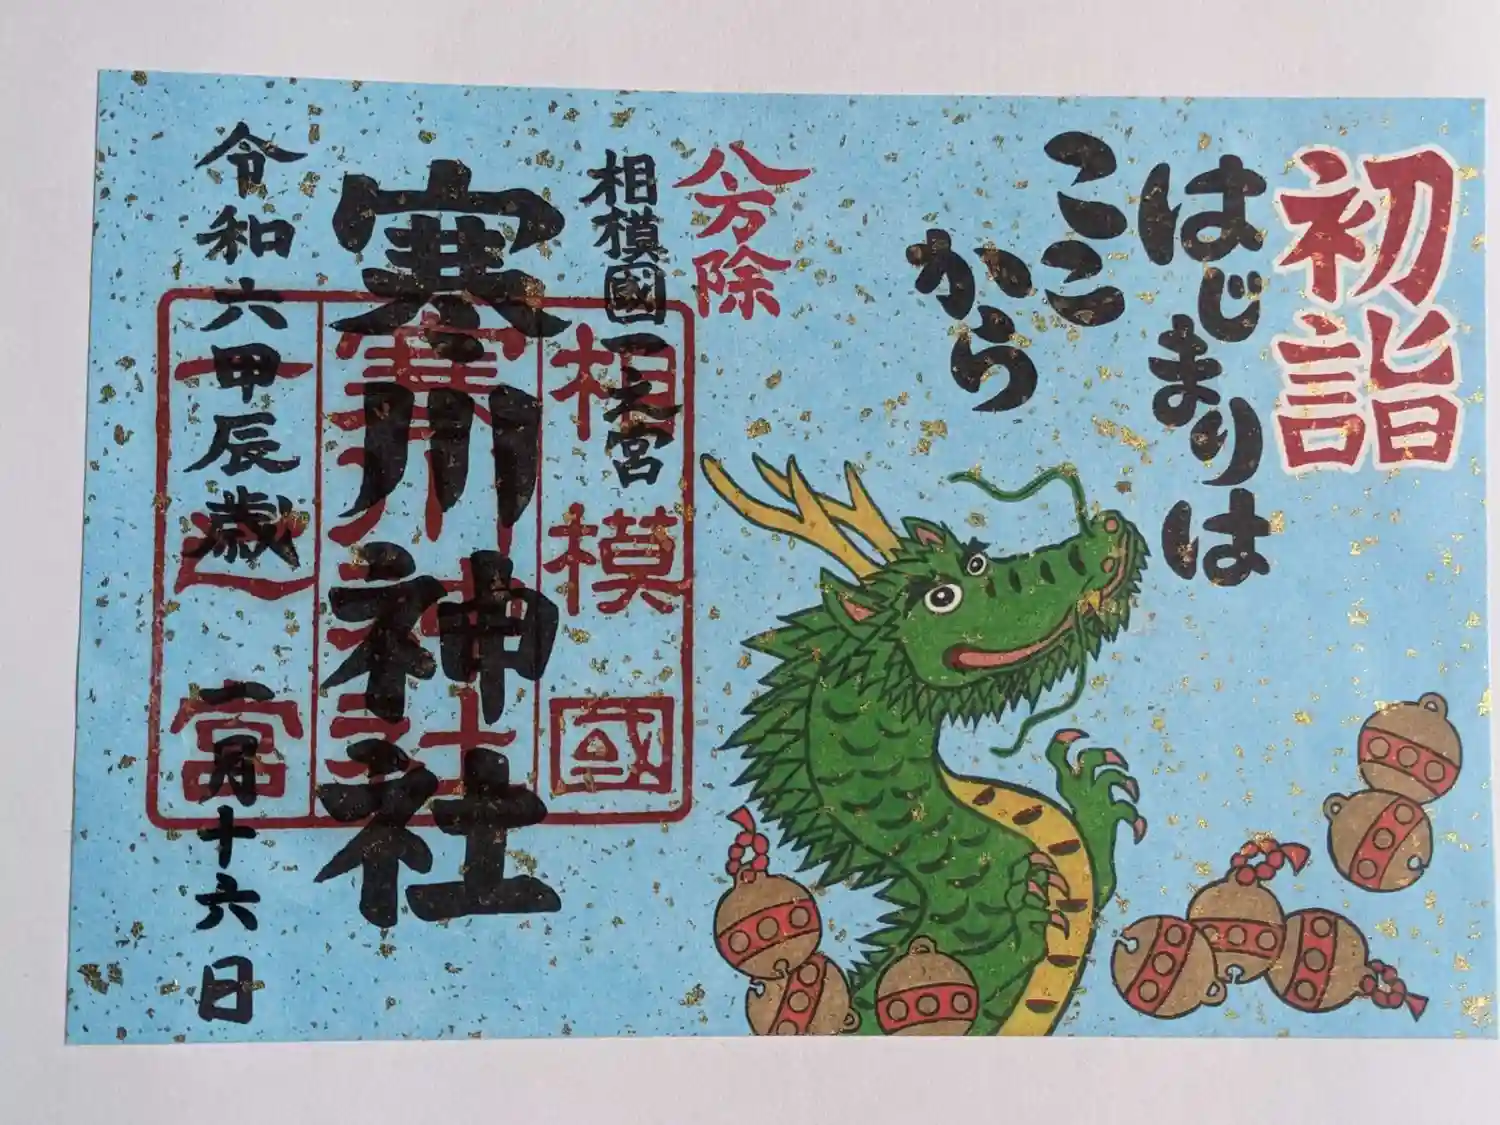 初詣
はじまりは
ここ
から
八方除
相模國一之宮
寒川神社
令和六甲辰歳
一月十六日
相模國
寒川神社
一之宮